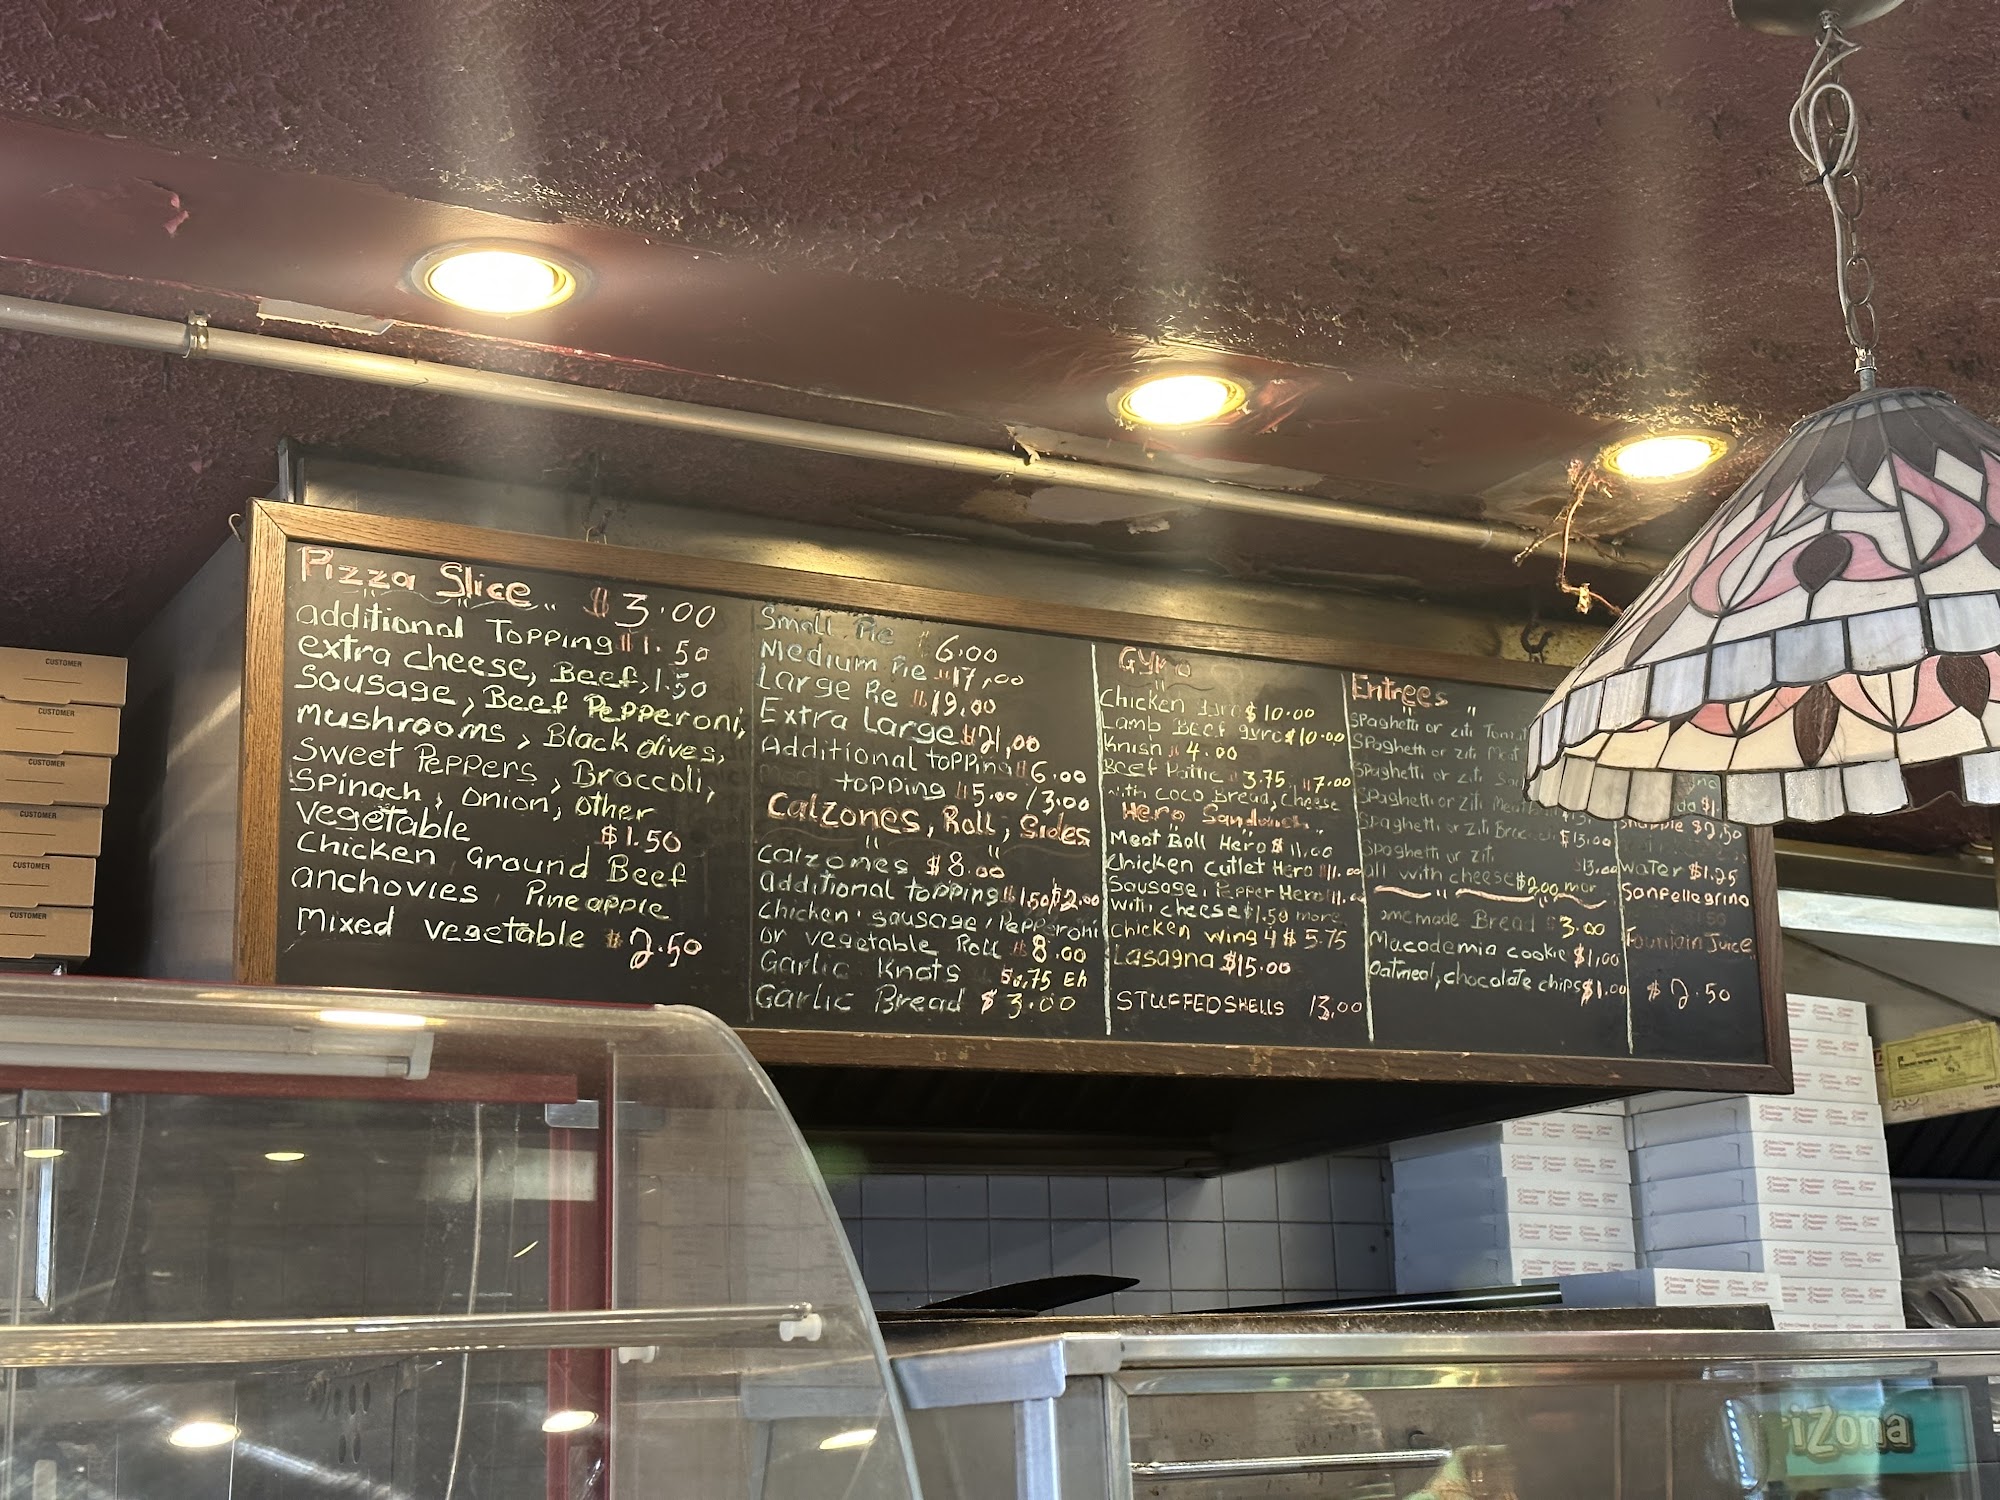 Pizza Slice $3.00
additional Topping $1.50
extra cheese, Beef, 1.50
Sausage, Beef Pepperoni,
mushrooms, Black olives,
Sweet Peppers, Broccoli,
Spinach, onion, other
vegetable $1.50
Chicken Ground Beef
anchovies, Pineapple
Mixed vegetable $2.50
Small Pie $6.00
Medium Pie $17,00
Large Pie $19,00
Extra Large $21,00
Additional topping $6.00
topping $5.00/3.00
Calzones, Roll, Sides
calzones $8.00
additional topping $1,50$2.00
chicken, sausage, Pepperoni
or vegetable Roll $8.00
Garlic Knots $0.75 Eh
Garlic Bread $3.00
Gyro
Chicken Gyro $10.00
Lamb Beef gyro $10.00
Knish $4.00
Beef Pattie $3.75, $7.00
with coco Bread, cheese
Hero Sandwich
Meat Ball Hero $11,00
Chicken cutlet Hero $11.00
Sausage, Pepper Hero
with cheese $1.50 more
chicken wing 4 $5.75
Lasagna $15.00
STUFFED SHELLS 13,00
Entrees
Spaghetti or ziti
Spaghetti or ziti Meat
Spaghetti or ziti
Spaghetti or ziti
Spaghetti or ziti $13,00
Spaghetti or ziti 13,00
all with cheese $2,00
made Bread $3.00
Macademia cookie $1,00
Oatmeal, chocolate chips $1.00
Snapple $2,50
Water $1,25
Sanpellegrino
Fountain Juice
$2.50
CUSTOMER
CUSTOMER
CUSTOMER
CUSTOMER
CUSTOMER
CUSTOMER
riZona